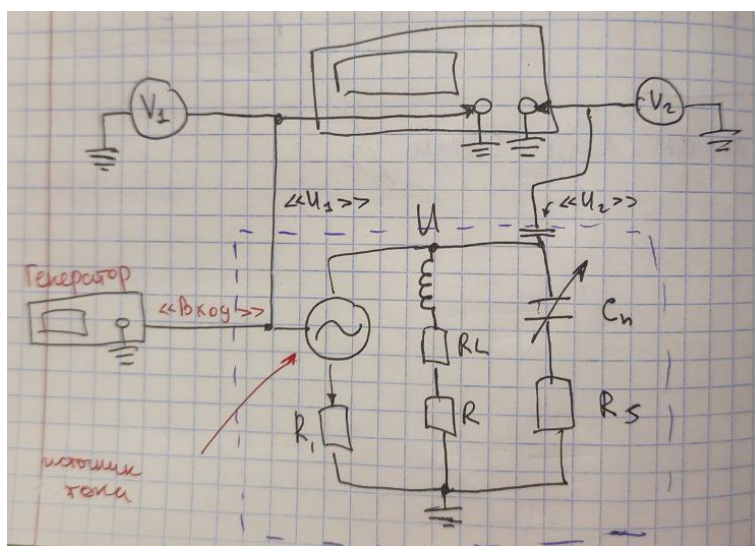 V₁
V₂
<<U₁>>
<<U₂>>
U
Генератор
<<Вход>>
Cₙ
R_L
R
R_S
R₁
источник
тока